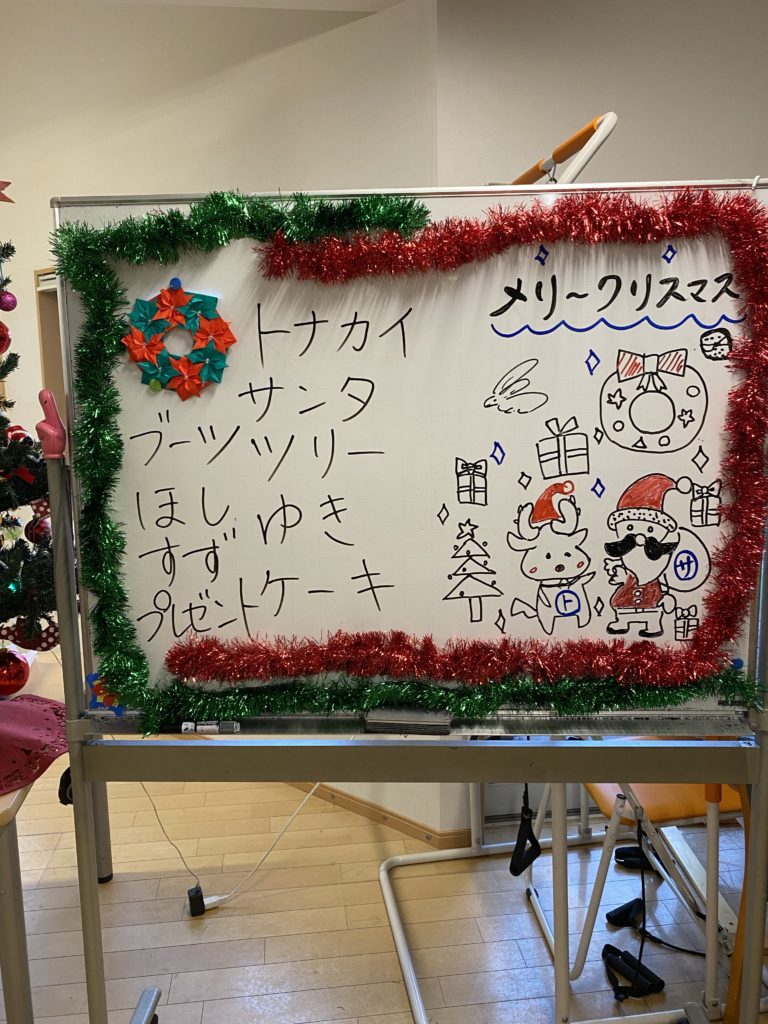 メリークリスマス
トナカイ
サンタ
ブーツ ツリー
ほし ゆき
すず
プレゼント ケーキ
ト
サ